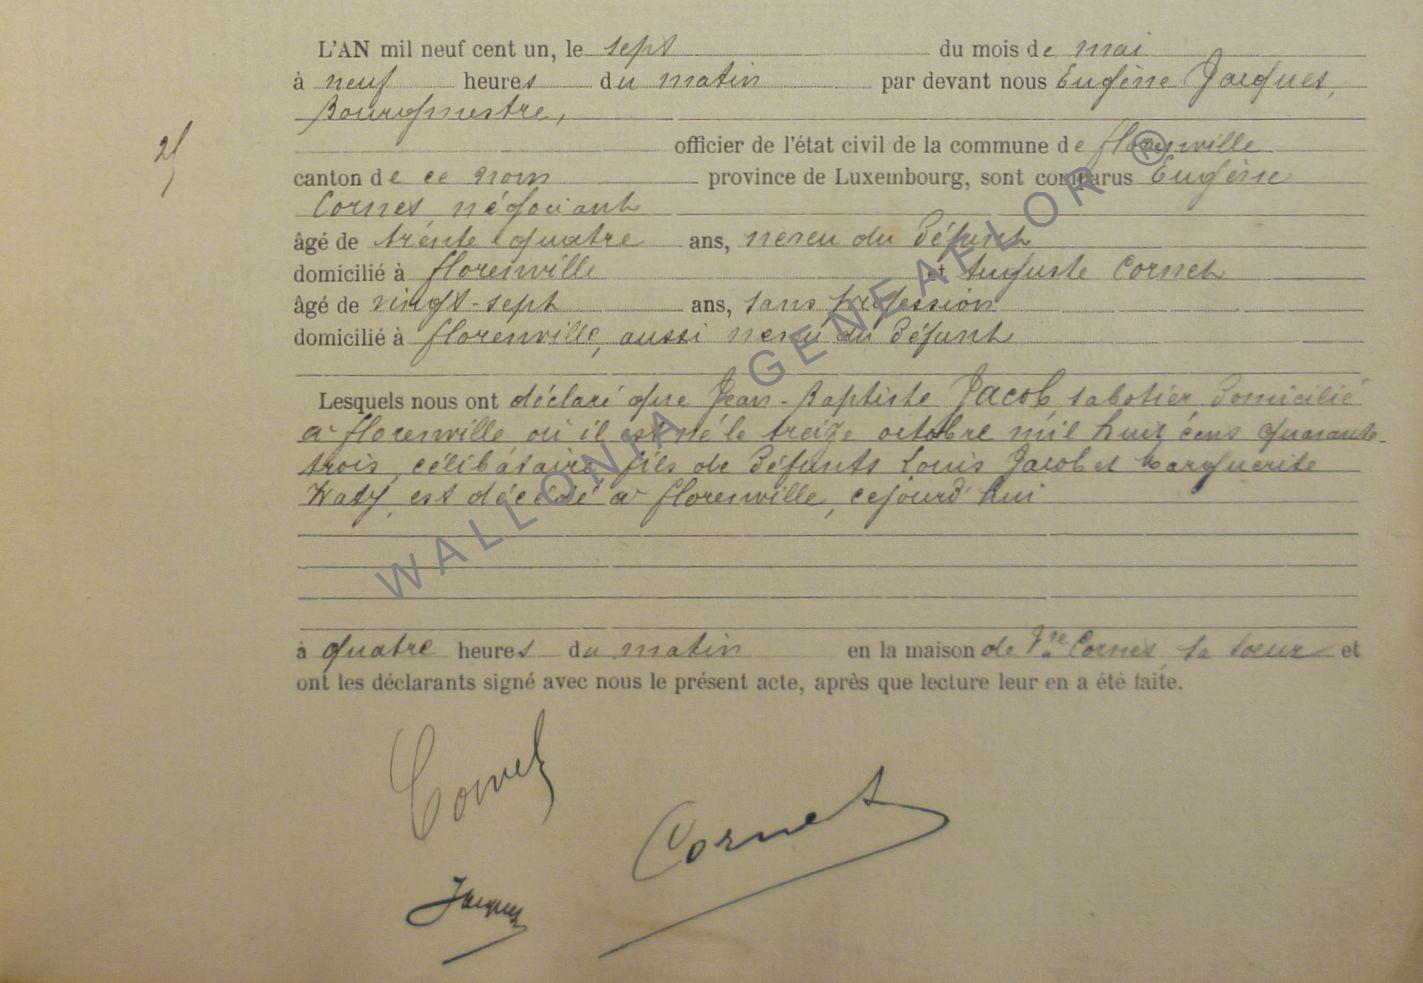 L'AN mil neuf cent un, le sept du mois de mai
à neuf heures du matin par devant nous Eugène Jacques,
Bourgmestre,
officier de l'état civil de la commune de florenville
25
canton de ce nom province de Luxembourg, sont comparus Eugène
Cornet, négociant
âgé de trente quatre ans, neveu du Défunt
domicilié à florenville et Auguste Cornet
âgé de vingt-sept ans, sans profession
domicilié à florenville, aussi neveu du Défunt
Lesquels nous ont déclaré que Jean-Baptiste Jacob, sabotier Domicilié
à florenville où il est né le treize octobre mil huit cent quarante-
trois, célibataire, fils de Défunts Louis Jacob et Marguerite
Waty, est décédé à florenville, cejourd'hui
à quatre heures du matin en la maison de Vve Cornet, sa sœur et
ont les déclarants signé avec nous le présent acte, après que lecture leur en a été faite.
Cornet
Cornet
Jacques
WALLONIA GENEAFLOR ®